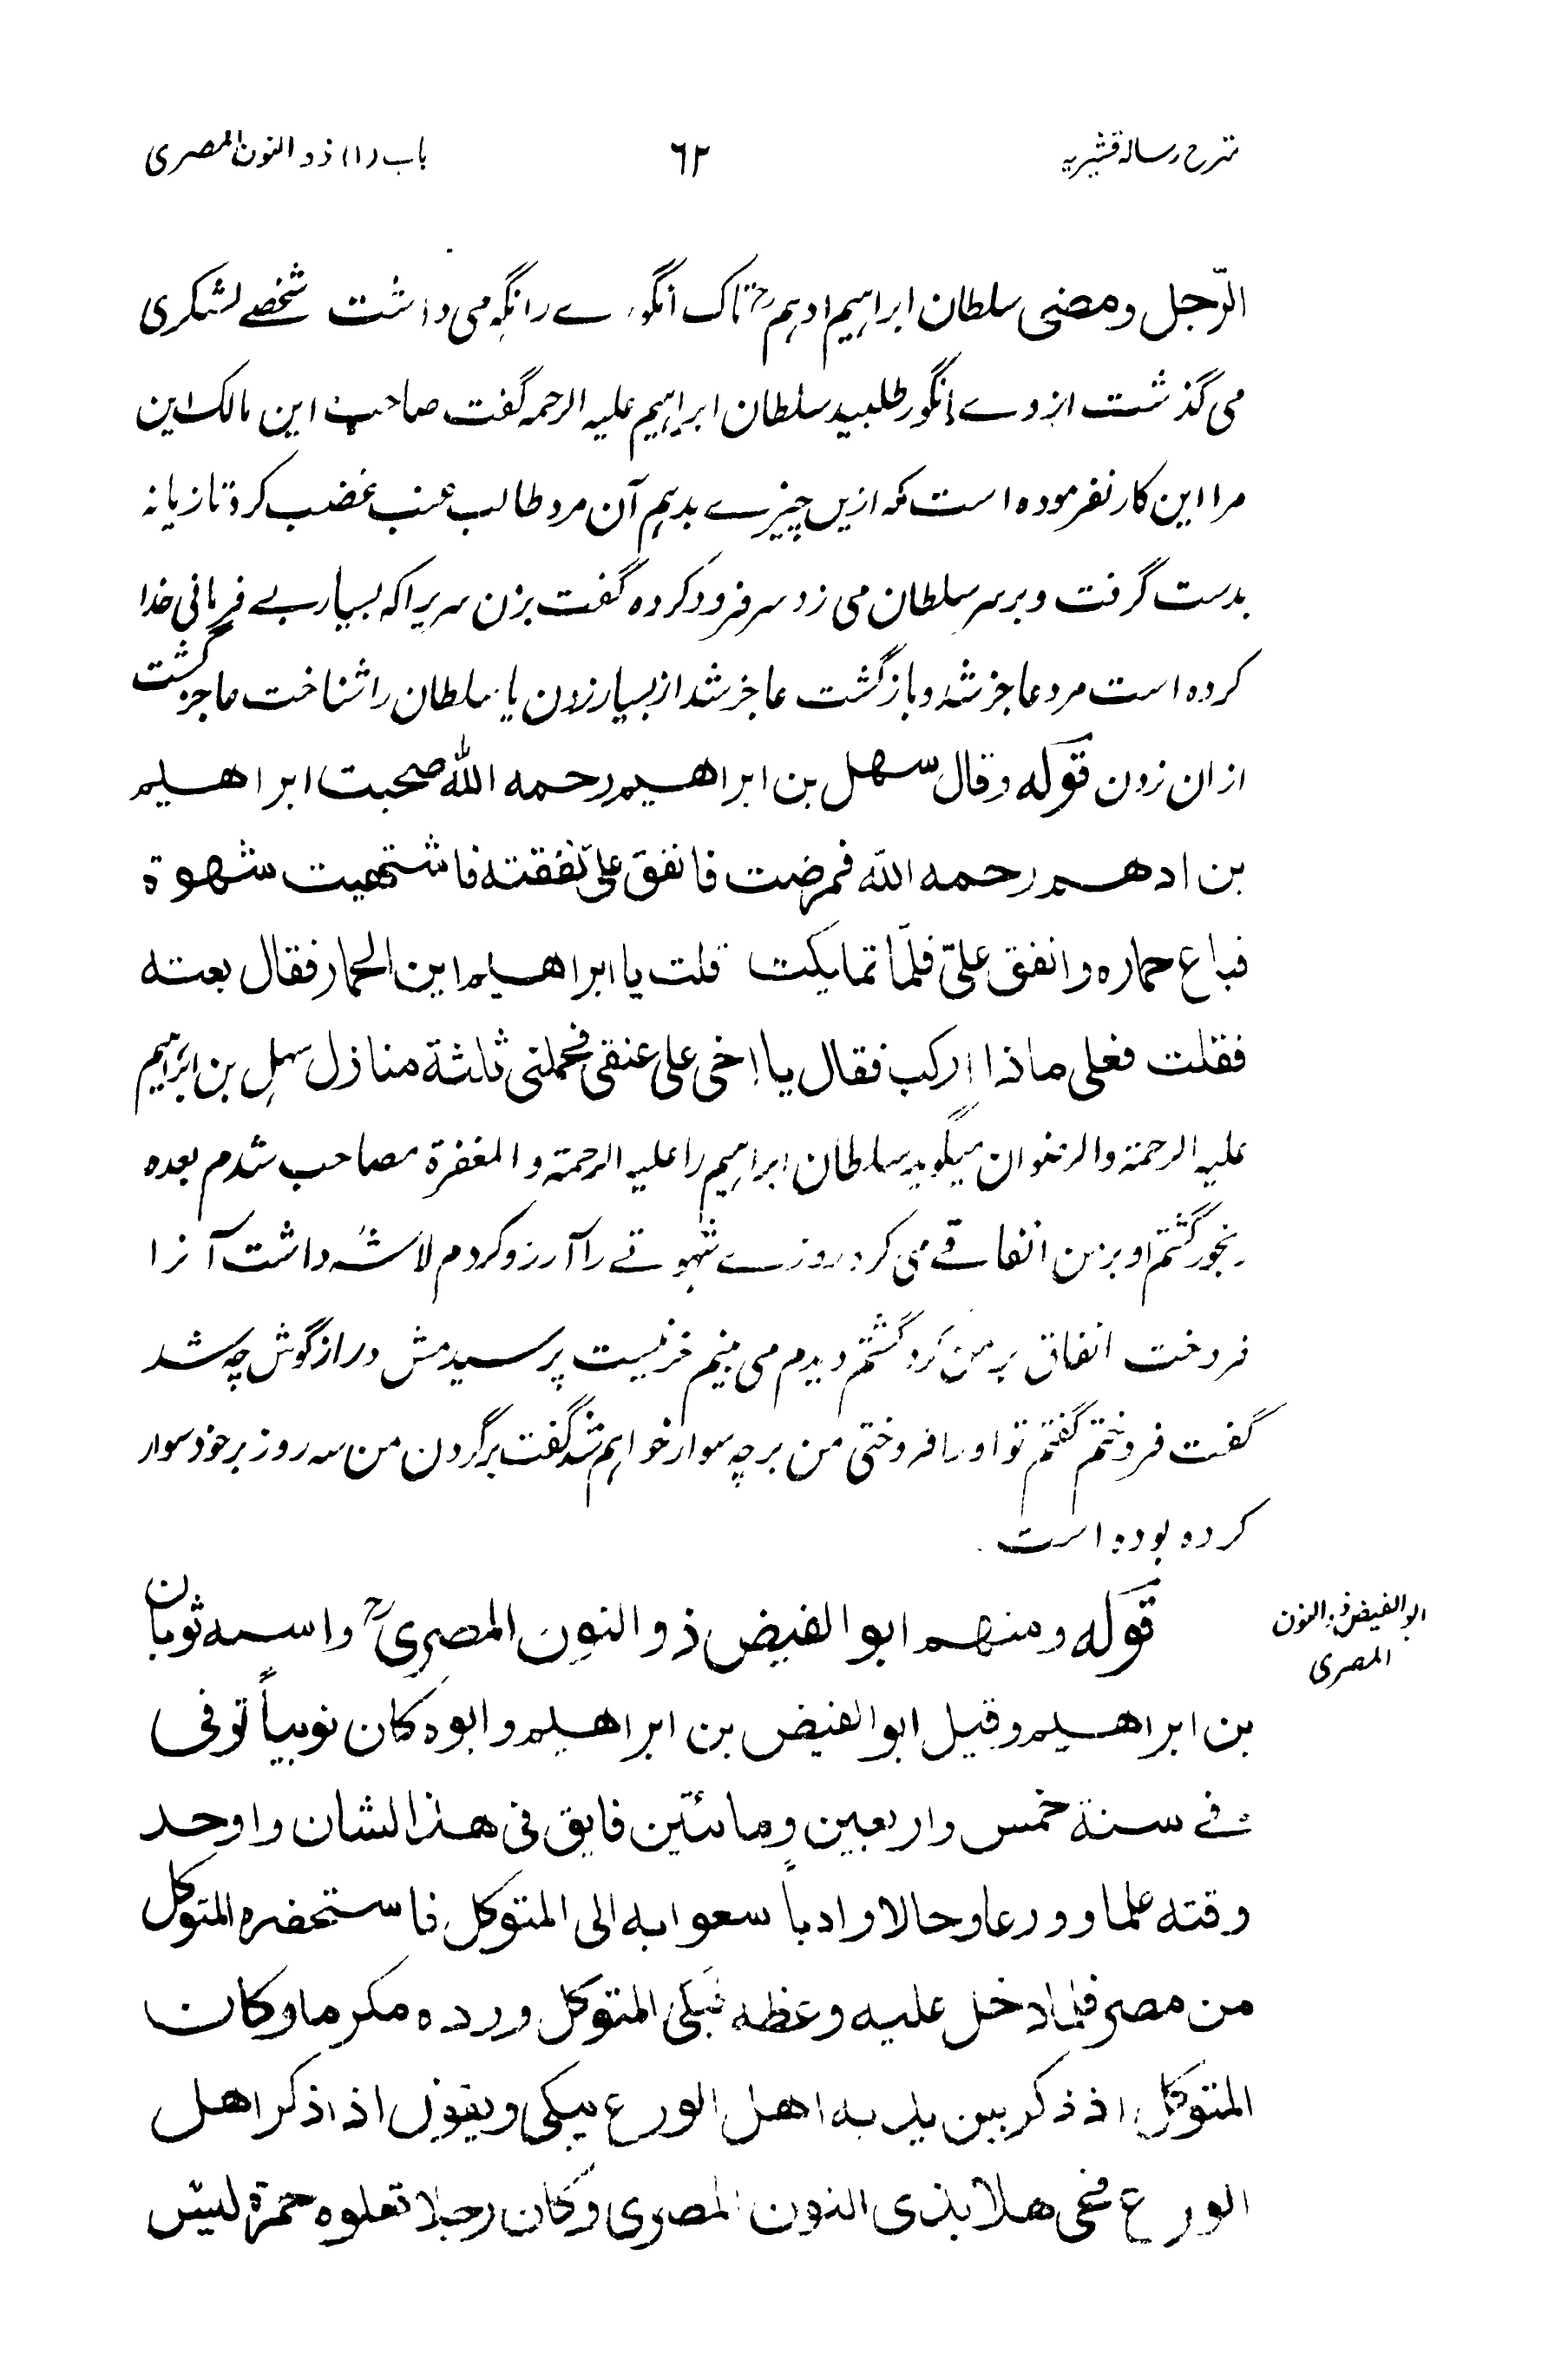 شرح رساله قشیریه
٦٢
باب (۱) ذو النون المصری
الرّجل ومضی سلطان ابراہیم ادہمؒ تاک انگورے را نگہ می داشت شخصے لشکری
می گذشت ازوے انگور طلبید سلطان ابراہیم علیہ الرحمہ گفت صاحب این مالک این
مرا این کار نفرمودہ است کہ ازیں چیزے بدہم آن مرد طالب عنب غضب کرد تازیانہ
بدست گرفت و بر سر سلطان می زد سر فرود کردہ گفت بزن سریرا کہ بسیار بے فرمانی خدا
کردہ است مرد عاجز شد و باز گشت عاجز شد از بسیار زدن یا سلطان را شناخت عاجز گشت
ازان زدن قوله وقال سهل بن ابراهیم رحمه الله صحبت ابراهیم
بن ادهم رحمه الله فمرضت فانفق علیّ نفقته فاشتهیت شهوة
فباع حماره وانفق علیّ فلمّا تمایکت قلت یا ابراهیم این الحمار فقال بعته
فقلت فعلی ماذا ارکب فقال یا اخی علی عنقی فحملنی ثلثة منازل سہل بن ابراہیم
علیہ الرحمۃ والرضوان میگوید سلطان ابراہیم را علیہ الرحمۃ و المغفرۃ مصاحب شدم بعدہ
رنجور گشتم او بر من انفاقے می کرد روزے شہوتے را آرزو کردم لاشہ داشت آنرا
فروخت انفاق بر من کرد گشتم دیدم می بینم خر نیست پرسیدمش دراز گوش چہ شد
گفت فروختم گفتم تو او را فروختی من بر چہ سوار خواہم شد گفت بر گردن من سہ روز بر خود سوار
کردہ بودہ است
ابو الفیض ذو النون
المصری
قوله ومنهم ابو الفیض ذو النون المصریؒ واسمه ثوبان
بن ابراهیم وقیل ابو الفیض بن ابراهیم وابوه کان نوبیاً توفی
فے سنة خمس واربعین ومائتین فایق فی هذا الشان واوحد
وقته علما وورعا وحالا وادباً سعوا به الی المتوکل فاستحضره المتوکل
من مصر فلما دخل علیه وعظه فبکی المتوکل ورده مکرما وکان
المتوکل اذ ذکر بین یدیه اهل الورع یبکی ویقول اذ اذکر اهل
الورع فحی هلا بذی النون المصری وکان رجلا تعلوه حمرة لیس